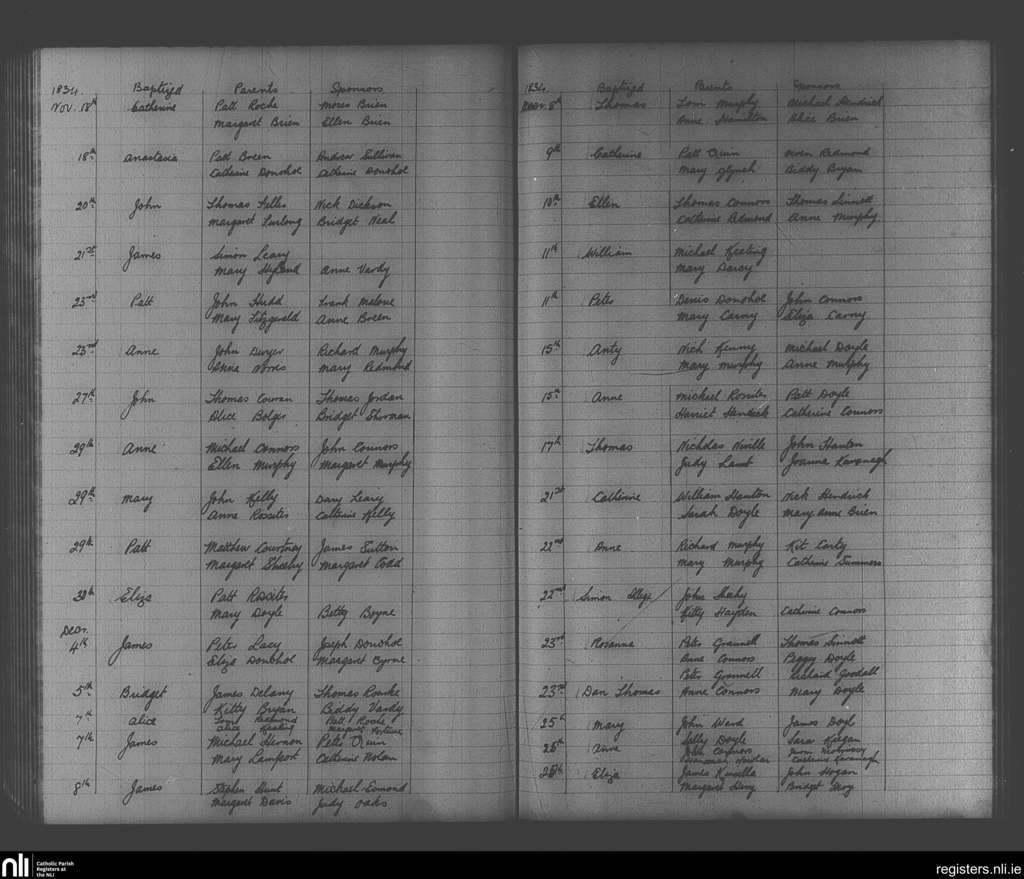 1834. Baptized Parents Sponsors
Nov. 18th Catherine Patt Roche Moses Brien
Margaret Brien Ellen Brien
18th Anastasia Patt Breen Andrew Sullivan
Catherine Donohoe Catherine Donohoe
20th John Thomas Nick Dickson
Margaret Furlong Bridget Neal
21st James Simon Leary
Mary Hyland Anne Vardy
23rd Patt John Hudd Frank Malone
Mary Fitzgerald Anne Breen
23rd Anne John Dwyer Richard Murphy
Norris Mary Redmond
27th John Thomas Cowan Thomas Jordan
Alice Bolger Bridget
29th Anne Michael Connors John Connors
Ellen Murphy Margaret Murphy
29th Mary John Kelly Leary
Anne Rossiter Catherine Kelly
29th Patt Matthew Courtney James Sutton
Margaret Sheehy Margaret
30th Eliza Patt Rossiter
Mary Doyle Betty Boyne
Decr.
4th James Peter Lacy Joseph Donohoe
Eliza Donohoe Margaret Byrne
5th Bridget James Delany Thomas Rourke
Kitty Bryan Biddy Vardy
7th Alice Tom Redmond Patt Roche
Alice Keating Margaret
7th James Michael Hernon Peter Quinn
Mary Lambert Catherine Nolan
8th James Stephen Hunt Michael Esmond
Margaret Davis Judy Oaks
1834. Baptized Parents Sponsors
Decr. 8th Thomas Tom Murphy Michael Hendrick
Anne Hamilton Alice Brien
9th Catherine Patt Quinn Redmond
Mary Glynch Biddy Bryan
10th Ellen Thomas Connors Thomas Sinnett
Catherine Redmond Anne Murphy
11th William Michael Keating
Mary Darcy
11th Peter Denis Donohoe John Connors
Mary Carny Eliza Carny
15th Anty Nich Kenny Michael Doyle
Mary Murphy Anne Murphy
15th Anne Michael Rossiter Patt Doyle
Harriet Catherine Connors
17th Thomas Nicholas Neville John Hanton
Judy Lamb Joanna Kavanagh
21st Catherine William Hanton Nick Hendrick
Sarah Doyle Mary Anne Brien
22nd Anne Richard Murphy Kit Carty
Mary Murphy Catherine Summers
22nd Simon Illegt John Sheehy
Kitty Hayden Catherine Connors
23rd Rosanna Peter Grannell Thomas Sinnott
Anne Connors Peggy Doyle
Peter Grannell Richard Goodall
23rd Dan Thomas Anne Connors Mary Doyle
25th Mary John Ward James Doyl
Sally Doyle Sara Keegan
25th Anne John Connors
Catherine Cavanagh
25th Eliza James Kinsella John Hogan
Margaret Bridget
nli Catholic Parish
Registers at
the NLI
registers.nli.ie